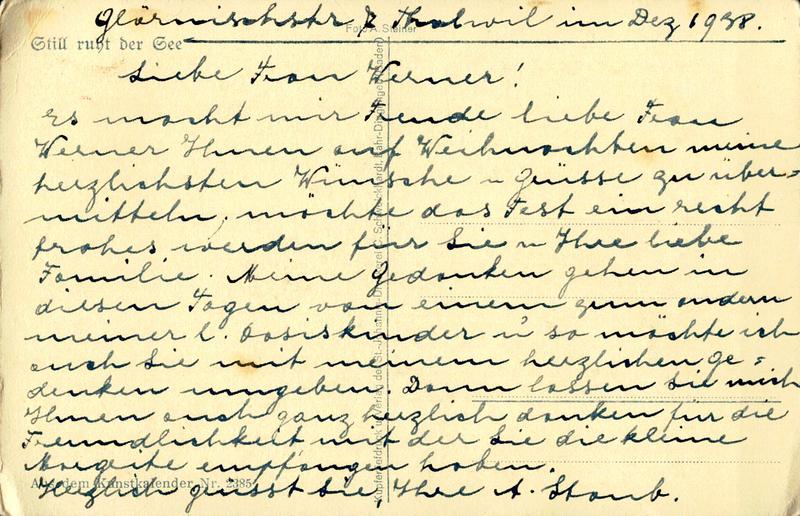 Glärnischstr 7 Thalwil im Dez 1938.
Foto A. Steiner
Still ruht der See
Liebe Frau Werner!
Es macht mir Freude liebe Frau
Werner Ihnen auf Weihnachten meine
herzlichsten Wünsche u Grüsse zu über=
mitteln, möchte das Fest ein recht
frohes werden für Sie u Ihre liebe
Familie. Meine Gedanken gehen in
diesen Tagen von einem zum andern
meiner l. Oasiskinder u so möchte ich
auch Sie mit meinem herzlichen Ge=
denken umgeben. Dann lassen Sie mich
Ihnen auch ganz herzlich danken für die
Freundlichkeit mit der Sie die kleine
empfangen haben.
Aus dem Kunstkalender Nr. 2385
Herzlich grüsst Sie, Ihre A. Staub.